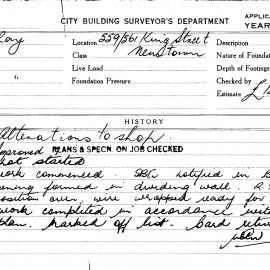 CITY BUILDING SURVEYOR'S DEPARTMENT
APPLIC
YEAR
Location 559/561 King Street
Class Newtown
Live Load
Foundation Pressure
Description
Nature of Founda
Depth of Footings
Checked by
Estimate £
HISTORY
Alterations to shop.
Approved PLANS & SPECN. ON JOB CHECKED
not started
work commenced. notified in B
ening formed in dividing wall. R.S
position over, were wrapped ready for
work completed in accordance with
plan. Marked off list. Card retur